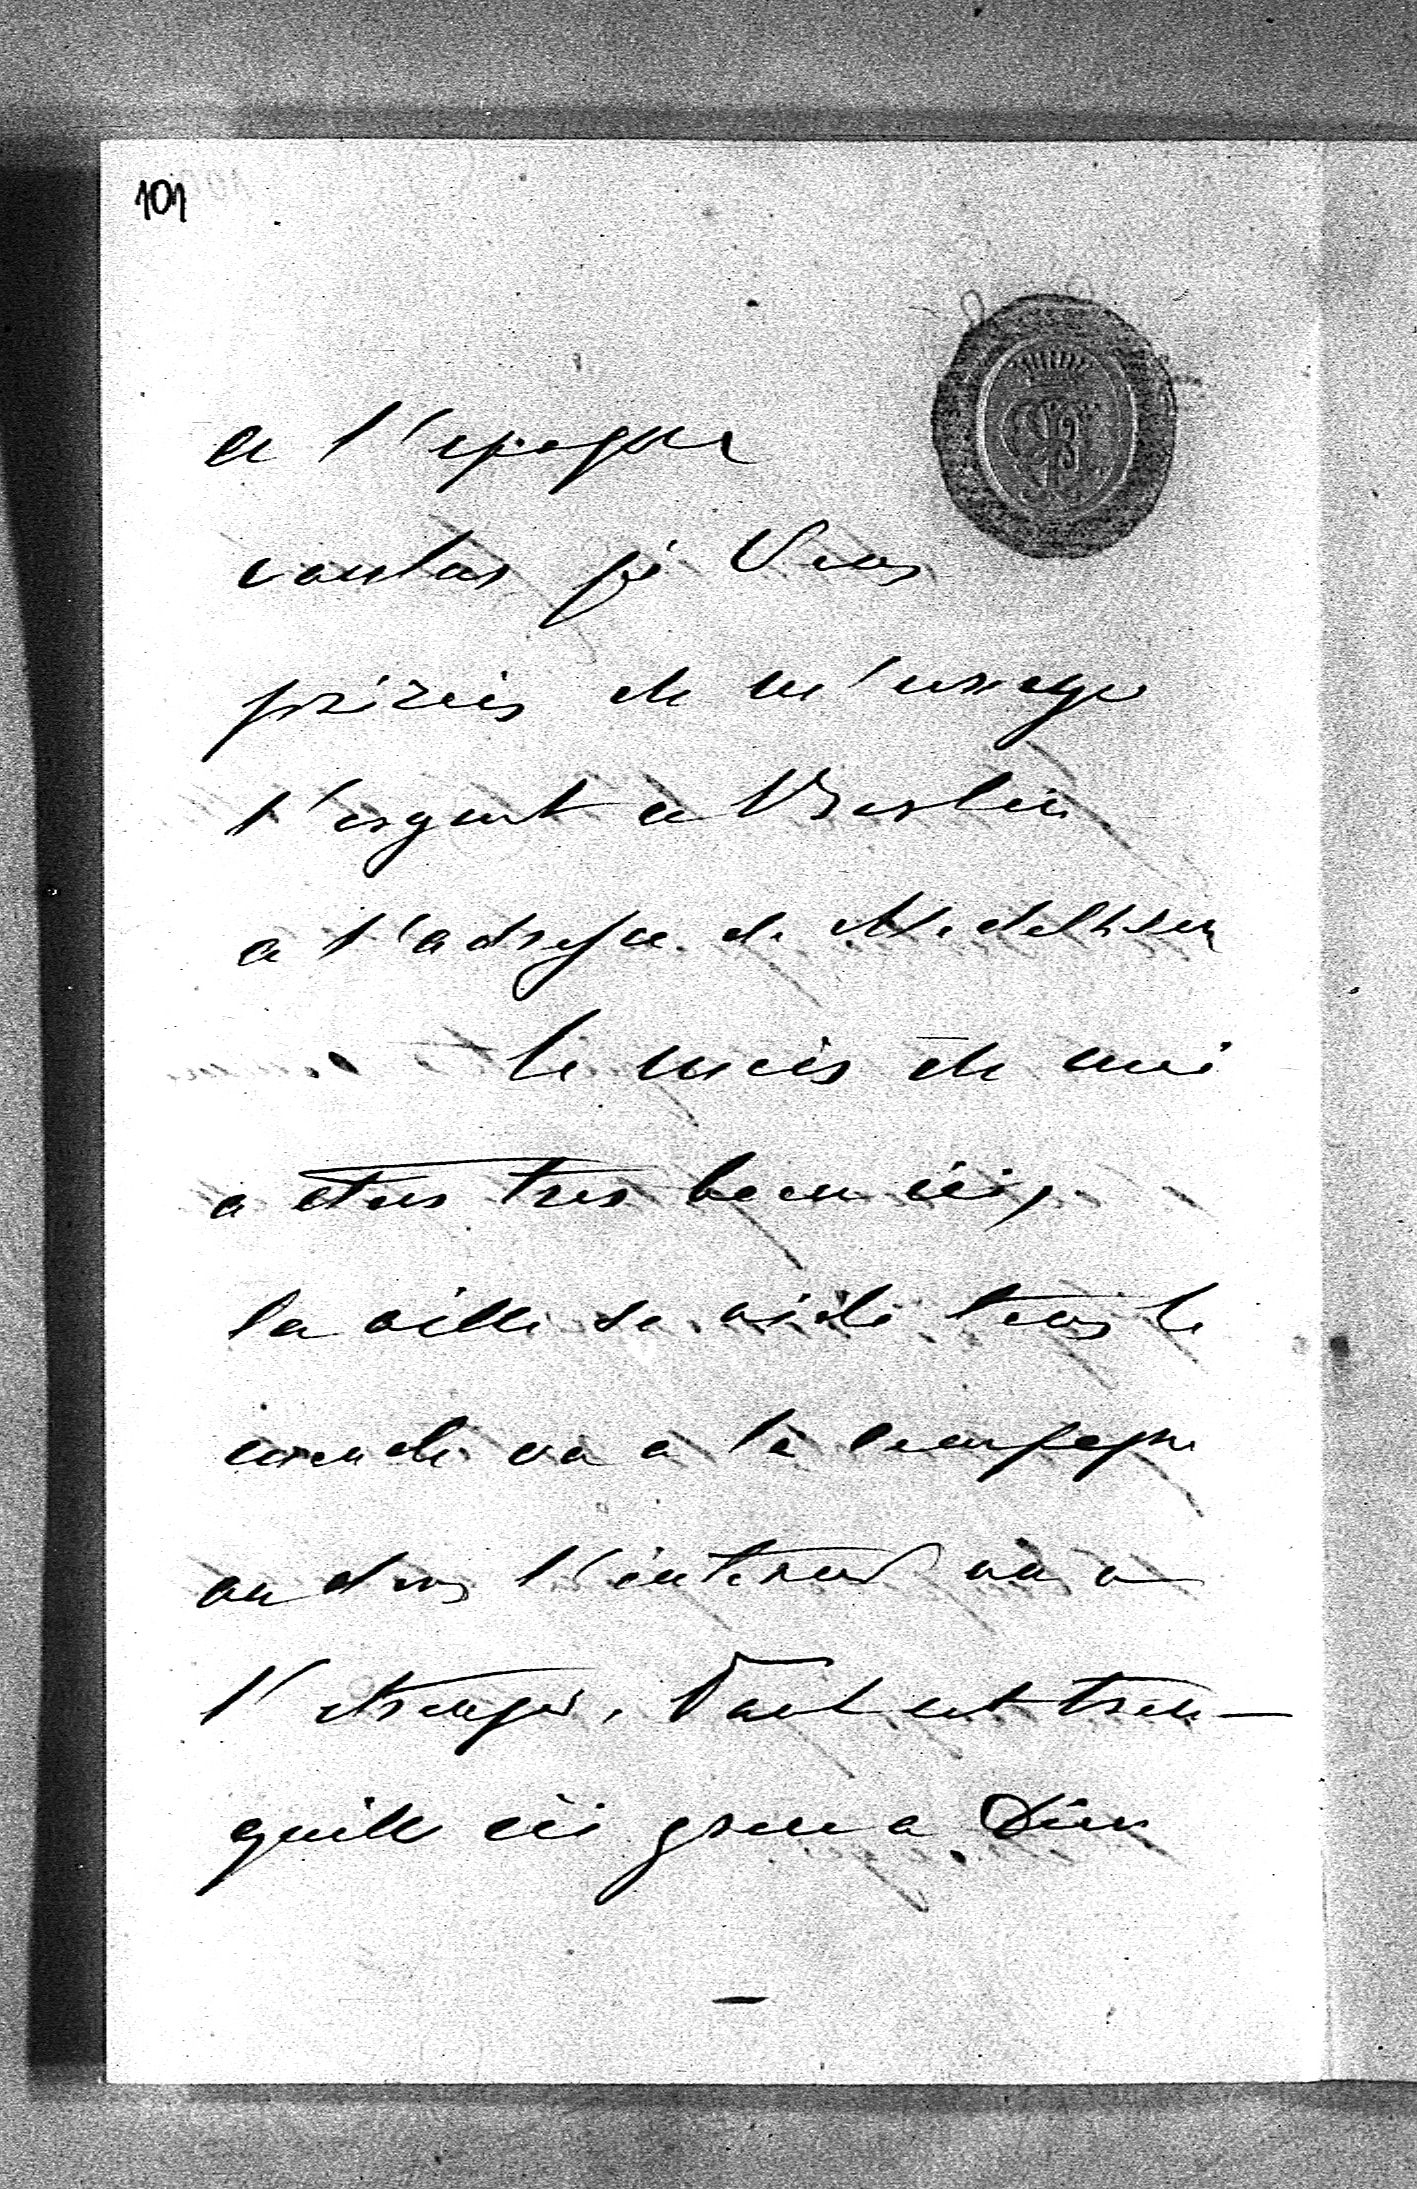 101
a l'epoque
voulus je Vous
prierais de m'envoyer
l'argent a Berlin
a l'adresse de Medelhson
le mois de mai
a etais tres beau ici,
la ville se vide tous le
monde va a la campagne
ou dans l'interieur ou a
l'etranger. Tout est tran-
quille ici grace a Dieu